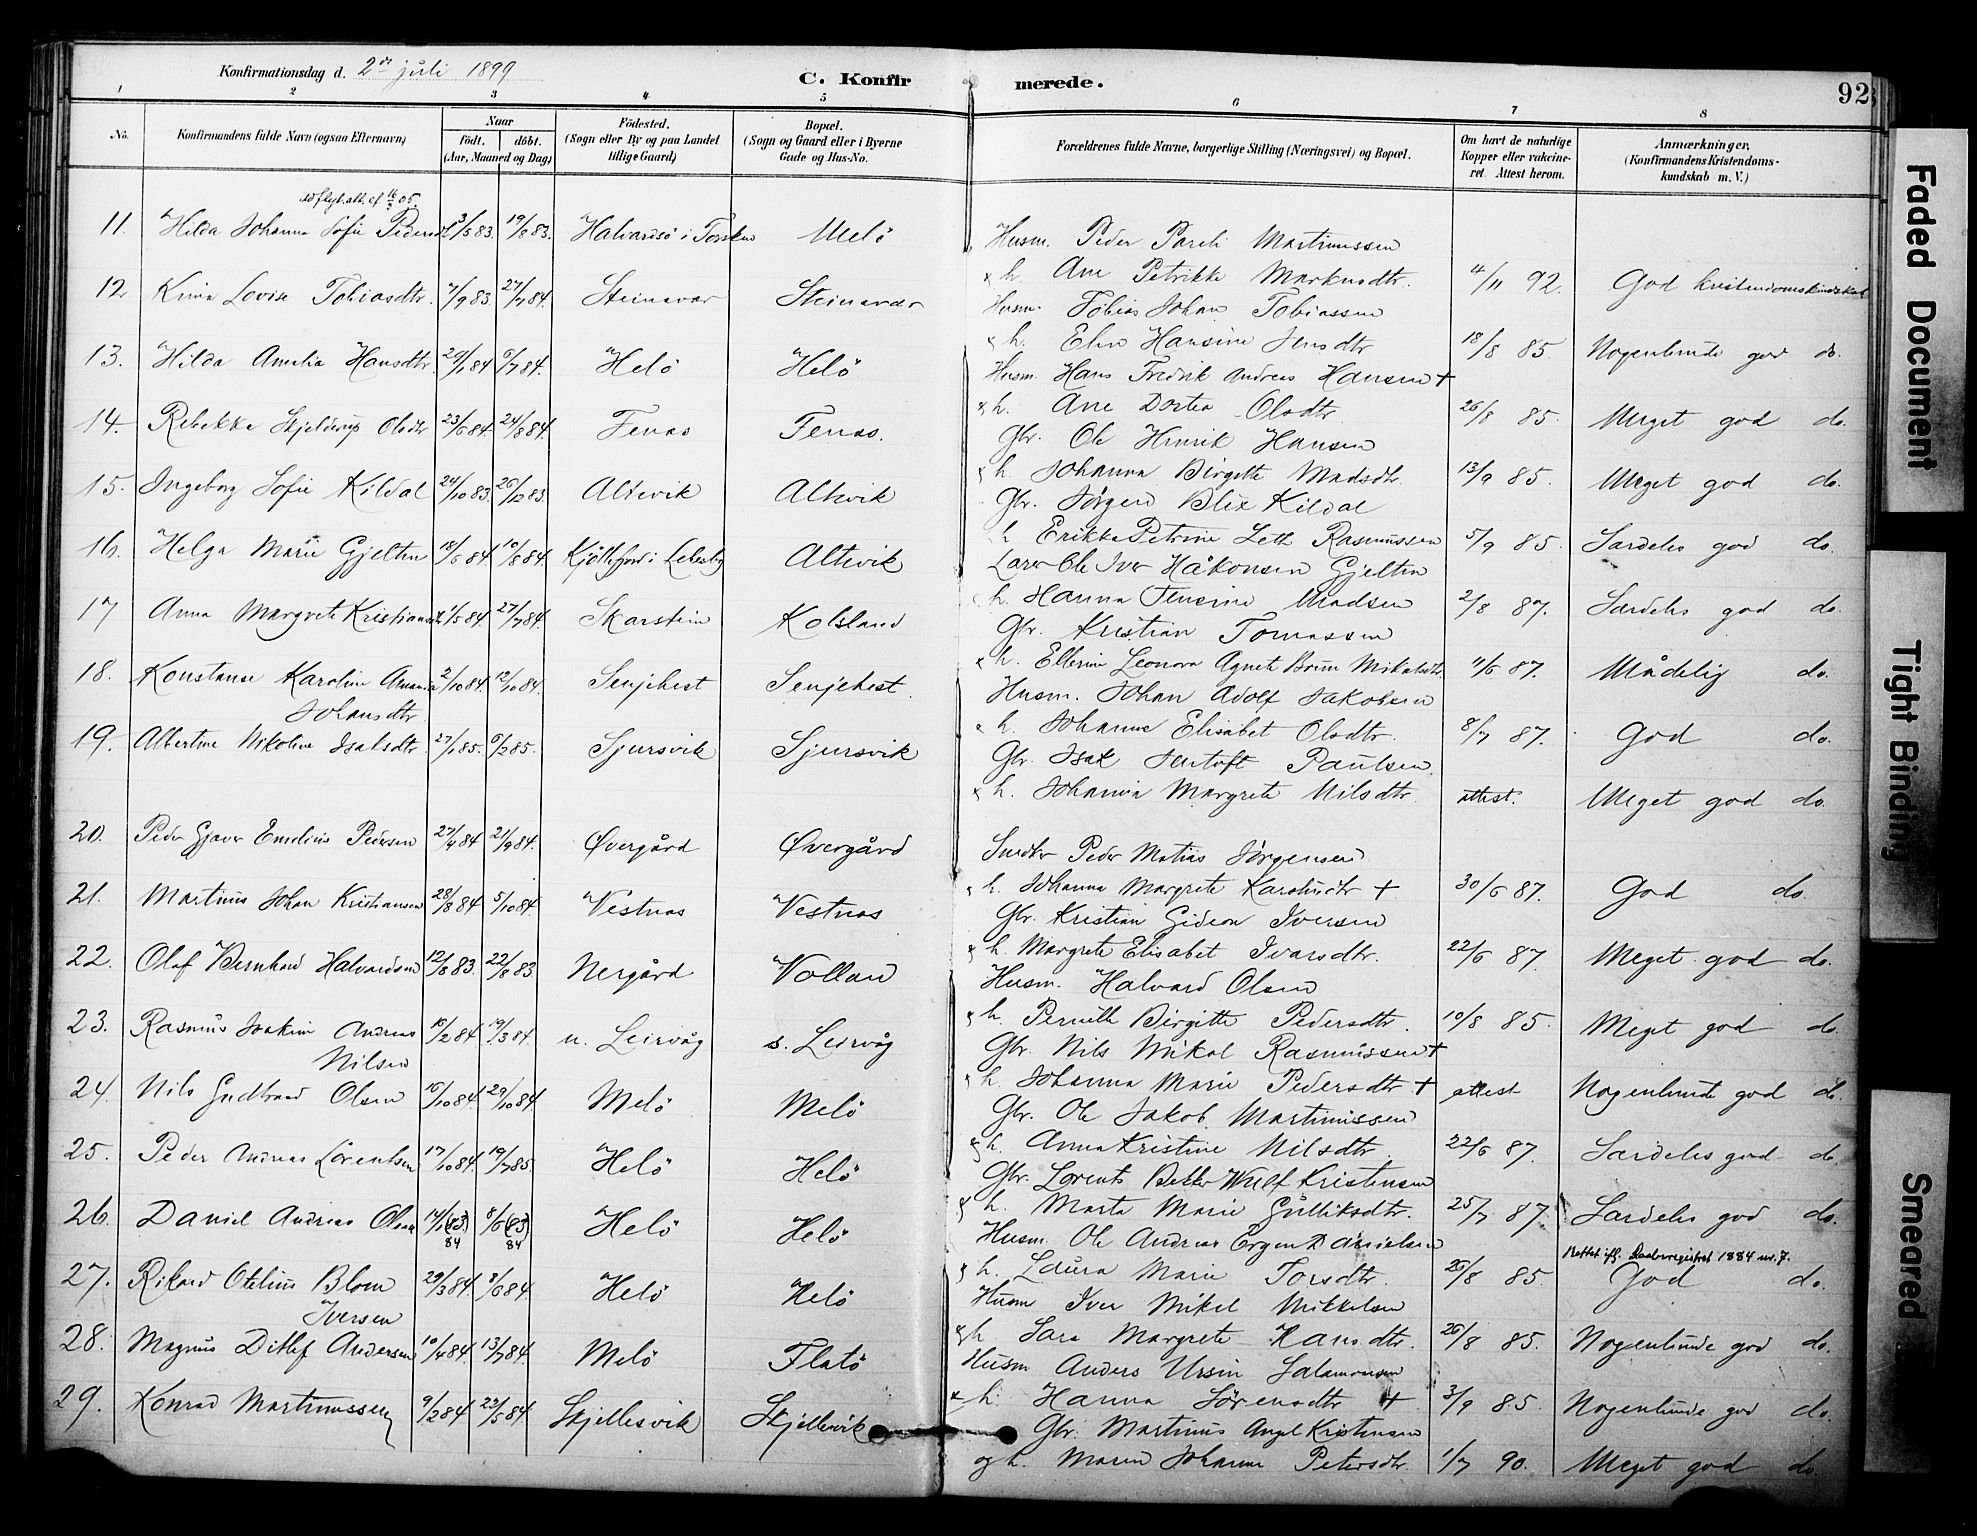 Konfirmationsdag d. 2den juli 1899
C. Konfirmerede.
92
1 2 3 4 5 6 7 8
No.
Konfirmandens fulde Navn (ogsaa Efternavn)
Naar
födt. döbt.
(Aar, Maaned og Dag)
Födested.
(Sogn eller By og paa Landet
tillige Gaard)
Bopæl.
(Sogn og Gaard eller i Byerne
Gade og Hus-No.
Forældrenes fulde Navne, borgerlige Stilling (Næringsvei) og Bopæl.
Om havt de naturlige
Kopper eller vakcine-
ret. Attest herom.
Anmærkninger.
(Konfirmandens Kristendoms-
kundskab m. V.)
11. Hilda Johanna Sofie 19/8 83. Melö Husm. Peder Martinussen
& h. Ane Petrikke 4/11 92. God kristendomskundskab
12. Lovise Tobiasdtr. 7/9 83 27/7 84. Steinavær Steinavær Husm. Tobias Johan Tobiassen
& h. Elen Hansine Jensdtr 18/8 85. Nogenlunde god do.
13. Hilda Amalia Hansdtr. Helö Helö Husm. Hans Fredrik Andreas Hansen +
& h. Ane Dortea Olsdtr. 26/8 85. Meget god do.
14. Rebekka Skjelderup Olsdtr 23/6 84. 24/8 84. Tenas Tenas. Gbr. Ole Henrik Hansen
& h. Johanna Birgitte Madsdtr. 13/9 85. Meget god do.
15. Ingeborg Sofie Kildal 24/10 83. 26/12 83. Altevik Altevik Gbr. Jørgen Blix Kildal
h. Erikka Petrine Leth Rasmussen 5/9 85. Særdeles god do.
16. Helga Marie Gjelten 18/6 84. 10/8 84. Kjöllefjord i Lebesby Altevik Lærer Ole Iver Håkonsen Gjelten
h. Hanna Madsen 2/8 87. Særdeles god do.
17 Anna Margrete 27/7 84. Skarstein Kolsland Gbr. Kristian Tomassen
& h. Ellerine Leonora Agnete Mikalsdtr. 11/6 87. Mådelig do.
18. Konstanse Karoline 2/10 84. 12/10 84. Senjehest Senjehest. Husm. Johan Adolf Jakobsen
Johansdtr.
& h. Johanne Elisabet Olsdtr. 8/7 87. God do.
19. Albertine Nikoline Isaksdtr. 27/1 85. Sjursvik Sjursvik Gbr. Isak Paulsen
& h. Johanna Margrete Nilsdtr. attest. Meget god do.
20. Peder Gjæver Emelius Pedersen 27/4 84 21/9 84. Øvergård Øvergård Peder Matias Jørgensen
& h. Johanna Margrete + 30/6 87. God do.
21. Martinus Johan Kristiansen 28/8 84 5/10 84. Vestnas Vestnas Gbr. Kristian Gideon Iversen
& h. Margrete Elisabet Ivarsdtr. 22/6 87. Meget god do.
22. Olaf Bernhard Halvardsen 12/8 83. 22/8 83 Nergård Vollan Husm. Halvard Olsen
& h. Pernille Birgitte Pedersdtr. 10/8 85. Meget god do.
23. Rasmus Joakim Andreas 19/3 84 n. Leirvåg s. Leirvåg Gbr. Nils Mikal Rasmussen +
Nilsen
& h. Johanna Marie Pedersdtr + attest Nogenlunde god do.
24. Nils Gudbrand Olsen 29/10 84 Melö Melö Gbr. Ole Jakob Martinussen
& h. Anna Kristine Nilsdtr. 22/6 87. Særdeles god do.
25. Peder Andreas Lorentsen 17/10 84. 19/7 85. Helö Helö Gbr. Lorents Bekker Wulf Kristensen
& h. Marta Marie Gulliksdtr. 25/7 87. Særdeles god do.
26. Daniel Andreas Olsen 14/1 (83) 84 8/6 (83) 84 Helö Helö Husm. Ole Andreas Danielsen
Rettet ifl. Daabsregistret 1884 nr. 7.
& h. Laura Marie Torsdtr. 26/8 85. God do.
27. Rikard Otelius Blom 29/3 84. Helö Helö Husm Iver Mikel Mikkelsen
Iversen
& h. Sara Margrete Hansdtr. 26/8 85. Nogenlunde god do.
28. Magnus Ditlef Andersen 10/4 84. 13/7 84. Melö Flatö Husm Anders Ursin Salamonsen
& h. Hanna Sörensdtr + 3/9 85. Nogenlunde god do.
29. Konrad Martinussen 9/2 84 22/5 84. Skjellesvik Skjellesvik Gbr. Martinus Angel Kristensen
og h. Maren Johanne Petersdtr. 1/7 90. Meget god do.
Faded Document
Tight Binding
Smeared